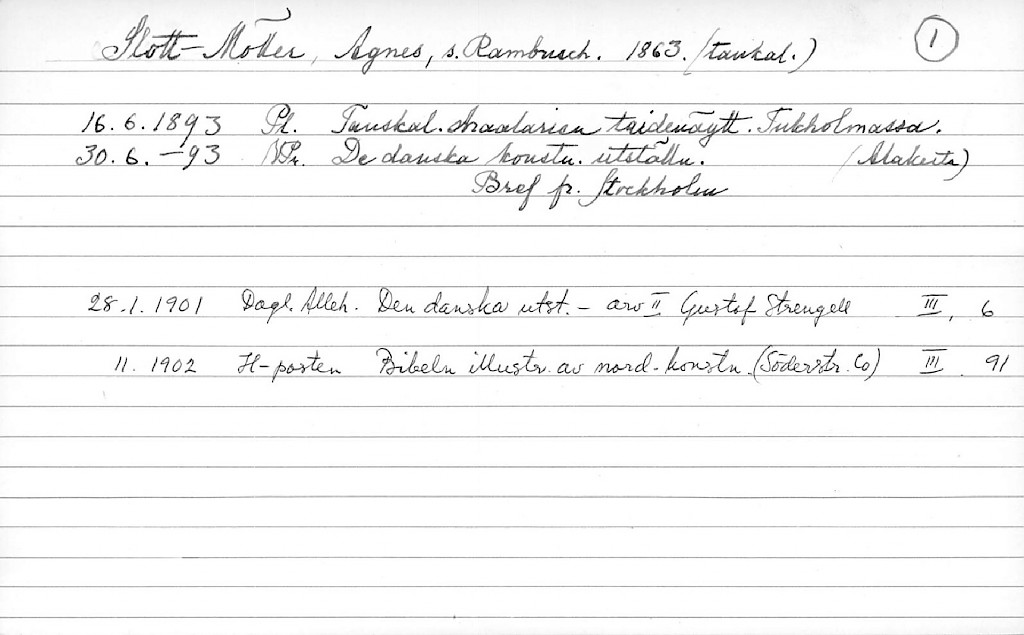 Slott-Möller, Agnes, s. Rambusch. 1863. (tanskal.) 1
16.6.1893 Pl. Tanskal. maalarien taidenäytt. Tukholmassa.
30.6.-93 NPr. De danska konstn. utställn. (Alakerta)
Bref fr. Stockholm
28.1.1901 Dagl. Alleh. Den danska utst. - arv II Gustaf Strengell III, 6
11.1902 H-posten Bibeln illustr. av nord. konstn. (Söderstr. Co) III. 91